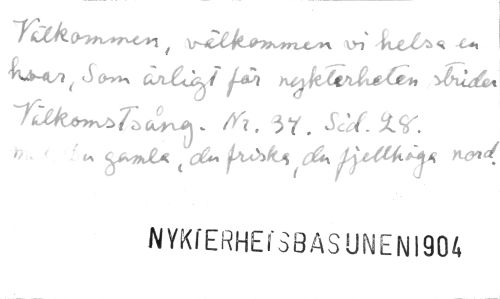 Välkommen, välkommen vi helsa en
hvar, Som ärligt för nykterheten strider
Välkomstsång. Nr. 34. Sid. 28.
gamla, du friska, du fjellhöga nord.
NYKTERHETSBASUNEN 1904